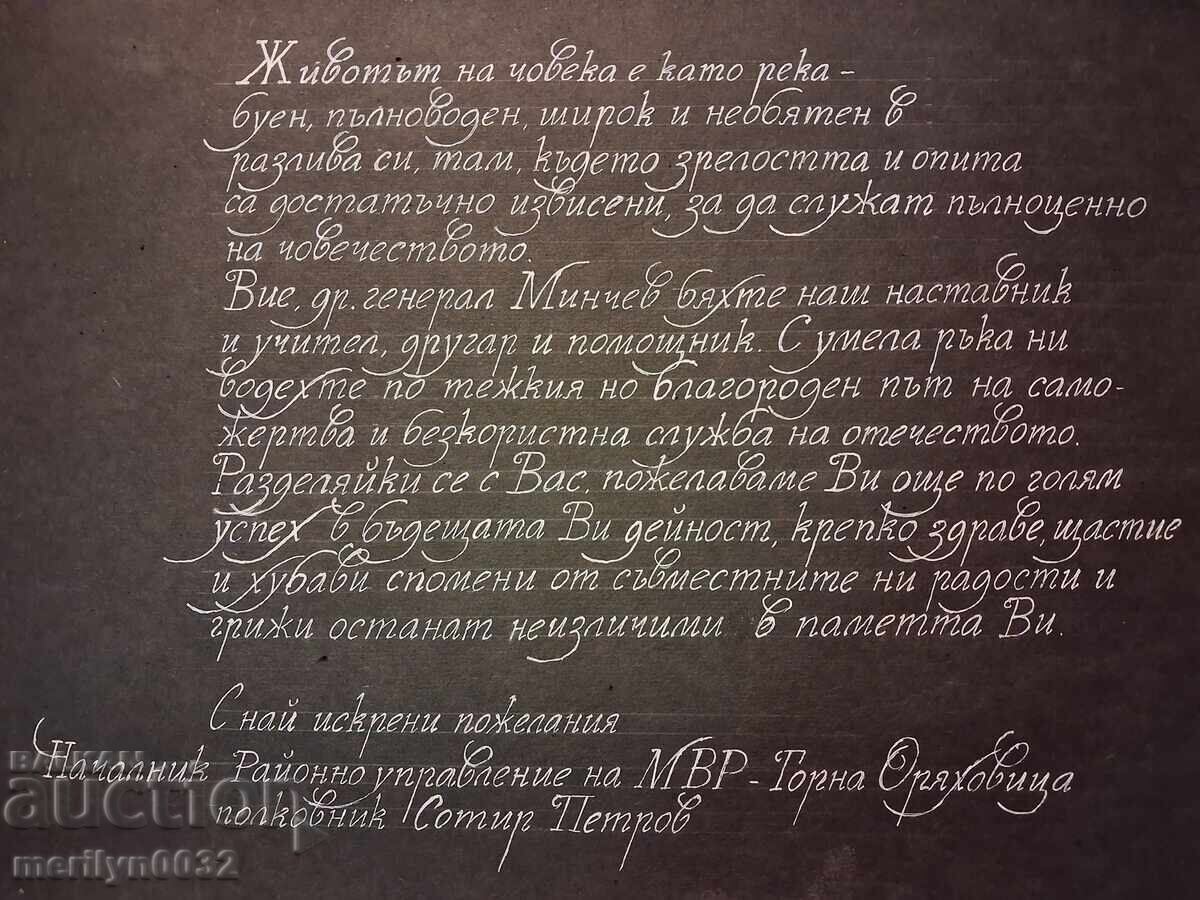 Животът на човека е като река -
буен, пълноводен, широк и необятен в
разлива си, там, където зрелостта и опита
са достатъчно извисени, за да служат пълноценно
на човечеството.
Вие, др. генерал Минчев бяхте наш наставник
и учител, другар и помощник. С умела ръка ни
водехте по тежкия но благороден път на само-
жертва и безкористна служба на отечеството.
Разделяйки се с Вас, пожелаваме Ви още по голям
успех в бъдещата Ви дейност, крепко здраве, щастие
и хубави спомени от съвместните ни радости и
грижи останат неизличими в паметта Ви.
С най искрени пожелания
Началник Районно управление на МВР - Горна Оряховица
полковник Сотир Петров
БАЛКАН
auction
merilyn0032